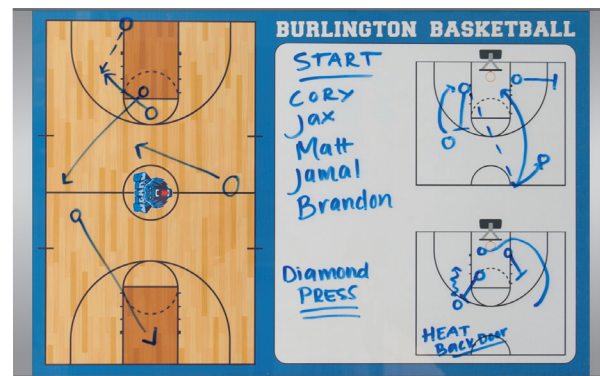 BURLINGTON BASKETBALL
START
CORY
Jax
Matt
Jamal
Brandon
Diamond
PRESS
HEAT
Back Door